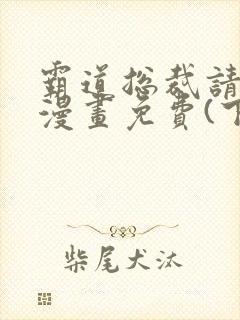 霸道总裁請
漫畫免費(下
柴尾犬汰